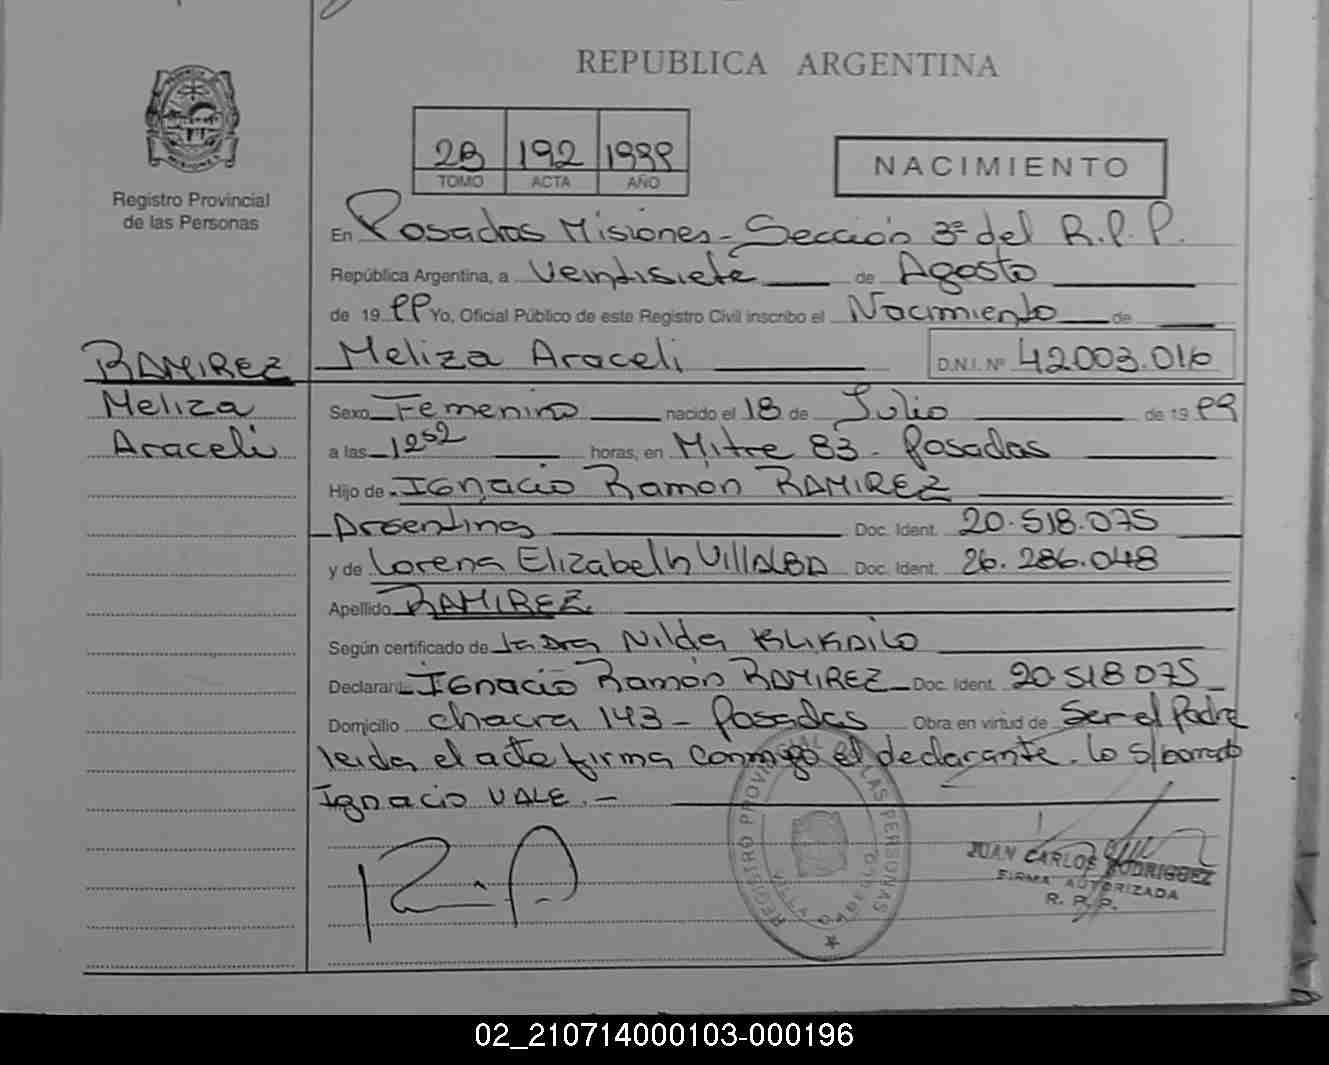 REPUBLICA ARGENTINA
2B 192 1999
TOMO ACTA AÑO
NACIMIENTO
Registro Provincial
de las Personas
En Posadas Misiones - Sección 3ª del R.P.P.
República Argentina, a Veintisiete de Agosto
de 1999 Yo, Oficial Público de este Registro Civil inscribo el Nacimiento de
RAMIREZ
Meliza
Araceli
Meliza Araceli D.N.I. Nº 42.003.016
Sexo Femenino nacido el 18 de Julio de 1999
a las 1252 horas, en Mitre 83 - Posadas
Hijo de Ignacio Ramón RAMIREZ
Argentina Doc. Ident. 20.518.075
y de Lorena Elizabeth VILLALBA Doc. Ident. 26.286.048
Apellido RAMIREZ
Según certificado de la Dra Nilda
Declarante Ignacio Ramón RAMIREZ Doc. Ident. 20.518.075
Domicilio chacra 143 - Posadas Obra en virtud de Ser el Padre
leida el acta firma conmigo el declarante. lo s/borrado
Ignacio VALE. -
REGISTRO PROVINCIAL DE LAS PERSONAS
JUAN CARLOS RODRIGUEZ
FIRMA AUTORIZADA
R. P. P.
02_210714000103-000196